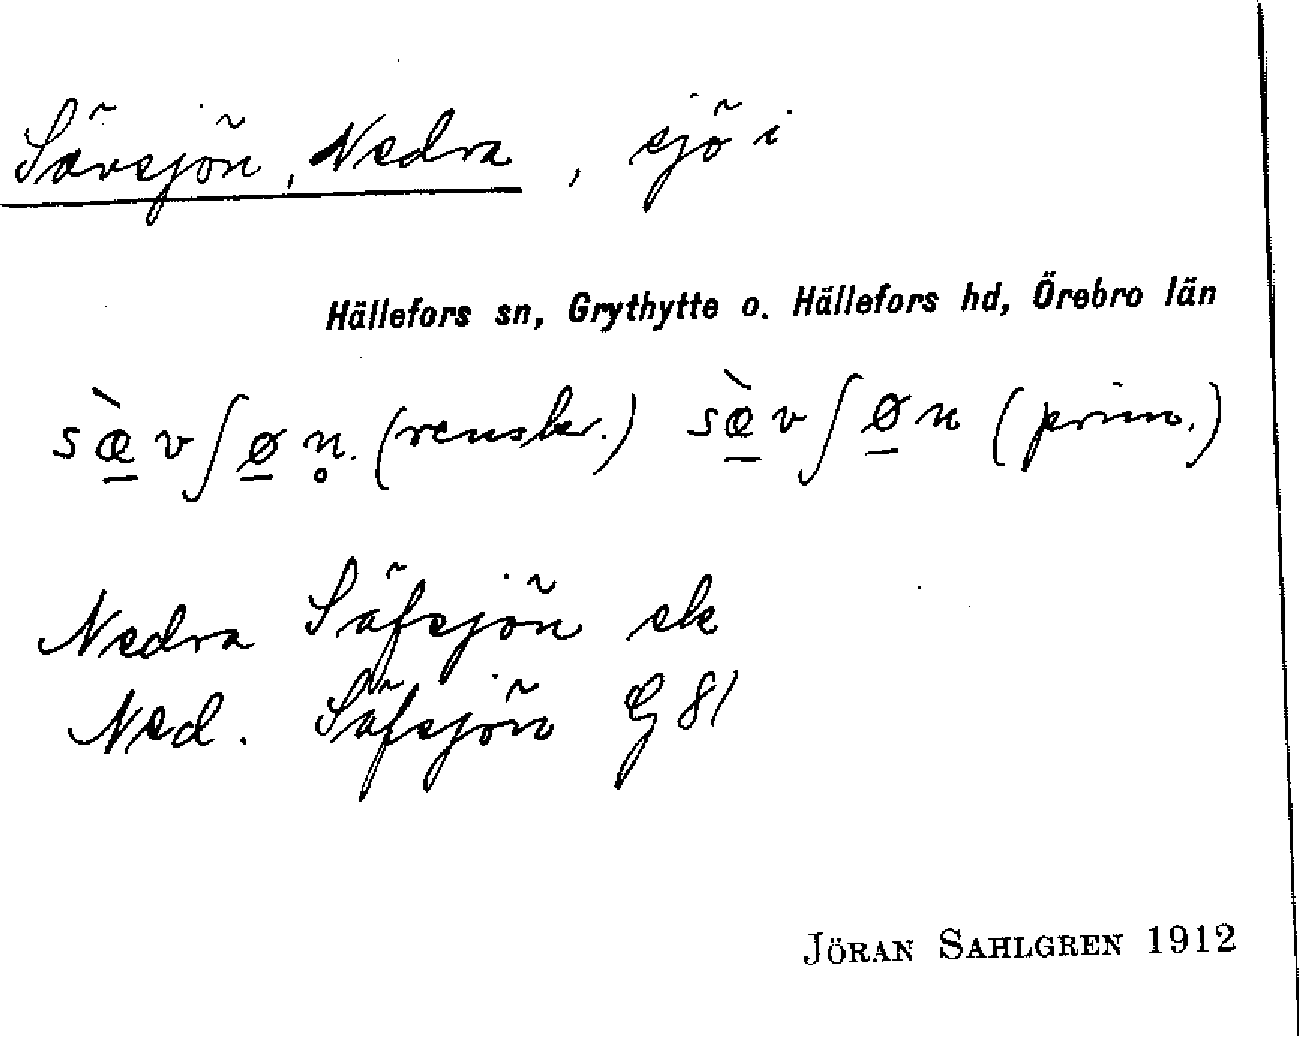 Sävsjön, Nedra, sjö i
Hällefors sn, Grythytte o. Hällefors hd, Örebro län
sæ̠̀vʃø̠n̥. (renskr.) sæ̠̀vʃø̠n (prim.)
Nedra Säfsjön ek
Ned. Säfsjön G 81
JÖRAN SAHLGREN 1912